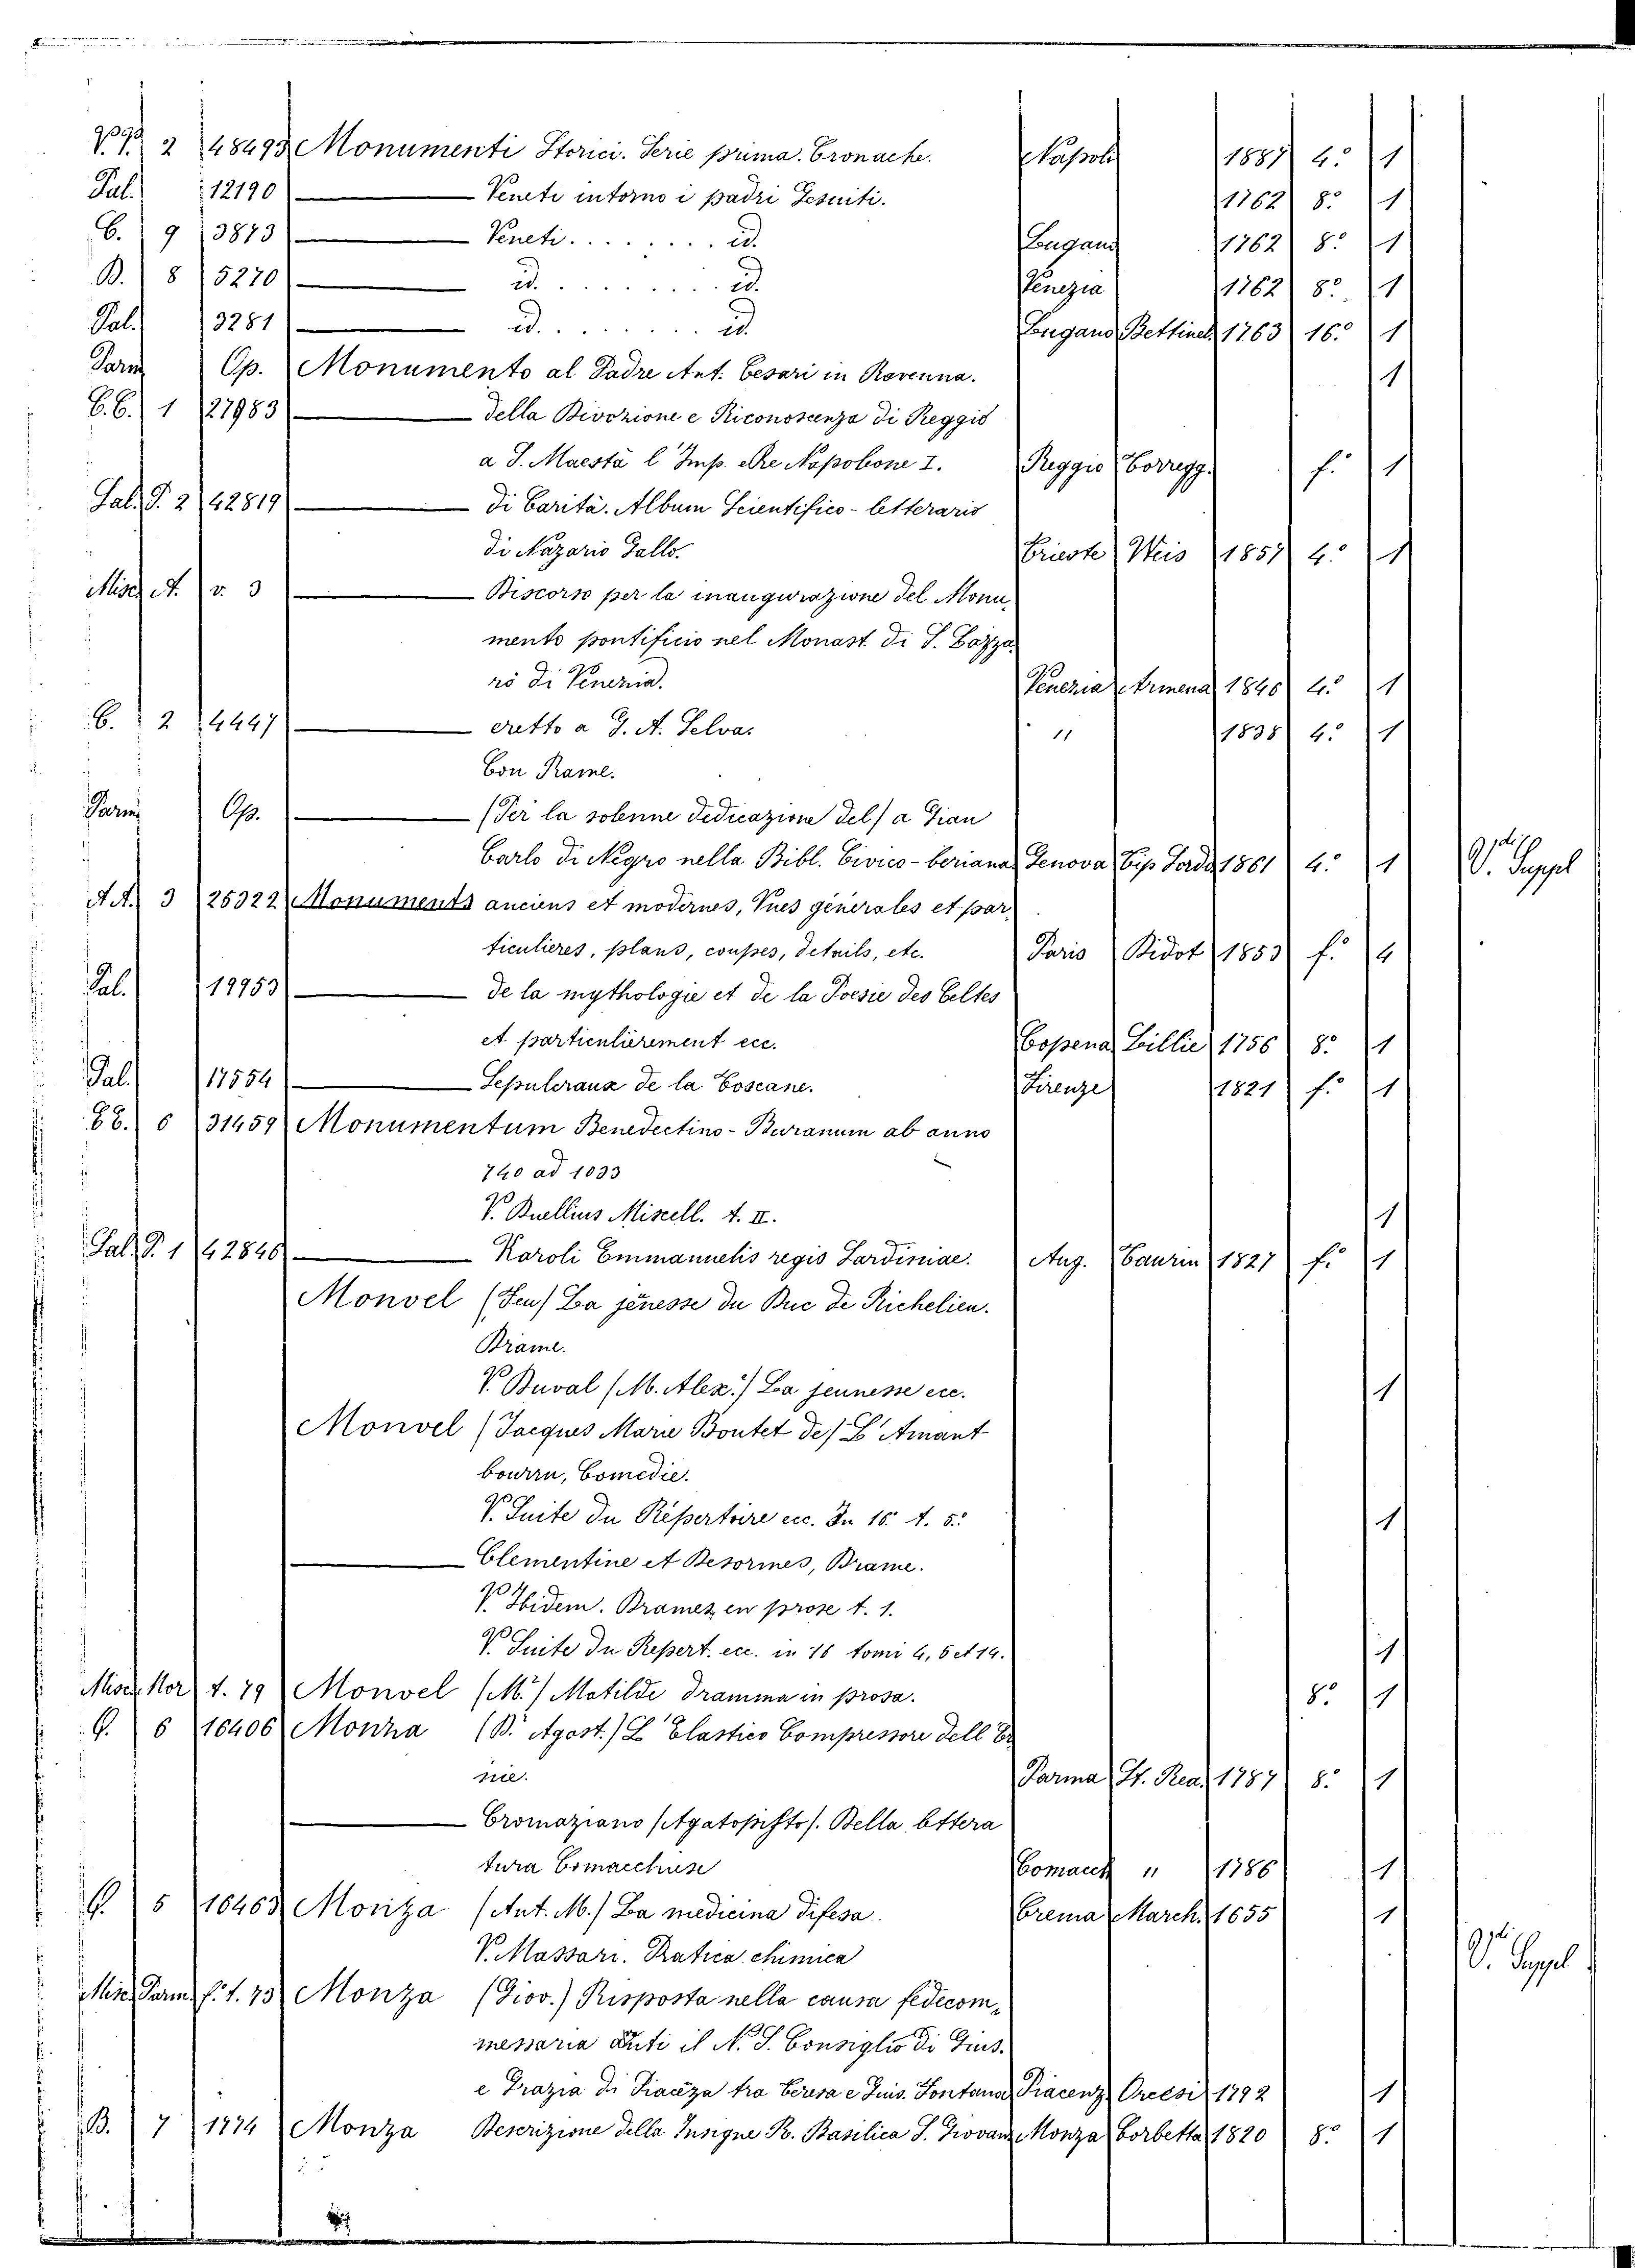 V.V. 2 48493 Monumenti Storici. Serie prima. Cronache. Napoli 1887 4.° 1
Pal. 12190 — Veneti intorno i padri Gesuiti. 1762 8.° 1
C. 9 3873 — Veneti . . . . . . . . id. Lugano 1762 8.° 1
B. 8 5270 — id. . . . . . . . . id. Venezia 1762 8.° 1
Pal. 3281 — id. . . . . . . . . id. Lugano Bettinel. 1763 16.° 1
Parm Op. Monumento al Padre Ant. Cesari in Ravenna. 1
C.C. 1 27983 — della Divozione e Riconoscenza di Reggio
a S. Maestà l'Imp. e Re Napoleone I. Reggio Corregg. f.° 1
Sal. P. 2 42819 — di Carità. Album Scientifico-letterario
di Nazario Gallo. Trieste Weis 1857 4.° 1
Misc. A. v. 3 — Discorso per la inaugurazione del Monu-
mento pontificio nel Monast. di S. Lazza-
ro di Venezia. Venezia Armena 1846 4.° 1
C. 2 4447 — eretto a G. A. Selva. " 1838 4.° 1
Con Rame.
Parm Op. — (Per la solenne dedicazione del) a Gian
Carlo di Negro nella Bibl. Civico-beriana Genova Tip. Sordo 1861 4.° 1 V. Suppl
A.A. 3 26322 Monuments anciens et modernes, Vues générales et par-
ticulieres, plans, coupes, details, etc. Paris Didot 1853 f.° 4
Pal. 19953 — de la mythologie et de la Poesie des Celtes
et particulièrement ecc. Copena. Lillie 1756 8.° 1
Pal. 17554 — Sepulcraux de la Toscane. Firenze 1821 f.° 1
6 31459 Monumentum Benedectino-Buranum ab anno
740 ad 1033
V. Duellius Miscell. t. II. 1
Sal. P. 1 42846 — Karoli Emmanuelis regis Sardiniae. Aug. Taurin 1827 f.° 1
Monvel (Feu) La jenesse du Duc de Richelieu.
Drame.
V. Duval (M. Alex.) La jeunesse ecc. 1
Monvel (Jacques Marie Boutet de) L'Amant
bourru, Comedie.
V. Suite du Répertoire ecc. In 16.° t. 5.° 1
— Clementine et Desormes, Drame.
V. Ibidem. Drames en prose t. 1.
V. Suite du Repert. ecc. in 16 tomi 4, 5 et 14. 1
Misc. Mor t. 79 Monvel (M.r) Matilde dramma in prosa. 8.° 1
G. 6 16406 Monza (D.r Agost.) L'Elastico Compressore dell'Er-
nie. Parma St. Rea. 1787 8.° 1
— Cromaziano (Agatopisto). Della lettera
tura Comacchiese Comacch " 1786 1
G. 5 16463 Monza (Ant. M.) La medicina difesa Crema March. 1655 1
V. Massari. Pratica chimica V. Suppl
Mis. Parm. f.° t. 73 Monza (Giov.) Risposta nella causa fedecom-
messaria anti il N. S. Consiglio di Gius.
e Grazia di Piacenza tra Teresa e Gius. Fontana Piacenz. Orcesi 1792 1
B. 7 1974 Monza Descrizione della Insigne R. Basilica S. Giovan. Monza Corbetta 1820 8.° 1